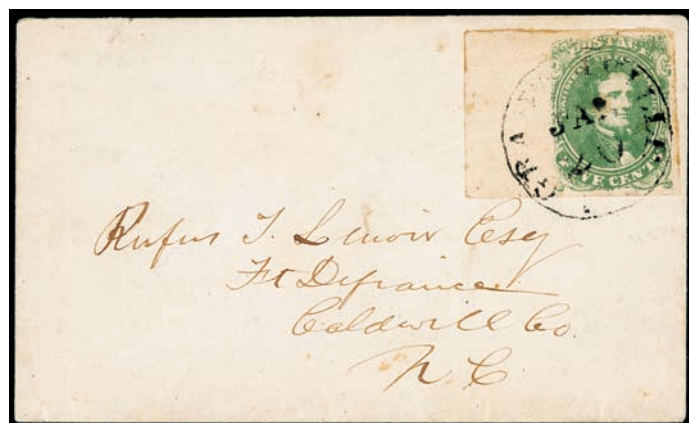 FIVE CENTS
JAN
Rufus T. Lenoir Esq
Ft Defiance
Caldwell Co.
N. C.